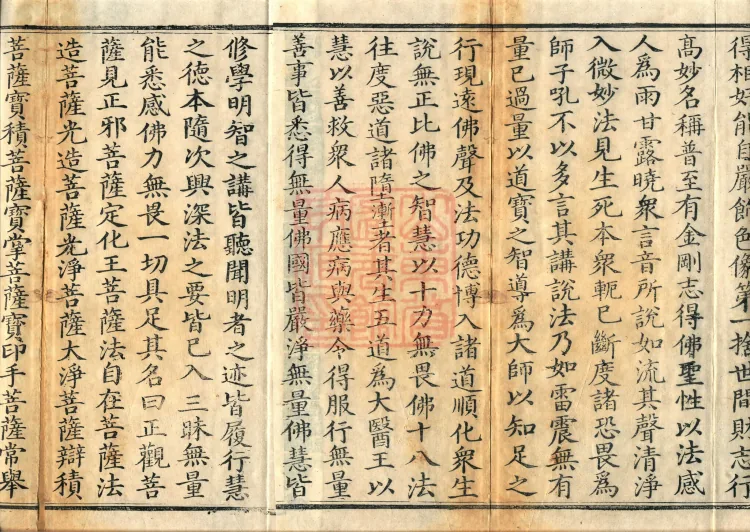 得相好能自嚴飾色像第一捨世間財志行
高妙名稱普至有金剛志得佛聖性以法感
人為雨甘露曉衆言音所說如流其聲清淨
入微妙法見生死本衆軛已斷度諸恐畏為
師子吼不以多言其講說法乃如雷震無有
量已過量以道寶之智導為大師以知足之
行現遠佛聲及法功德博入諸道順化衆生
說無正比佛之智慧以十力無畏佛十八法
往度惡道諸墮漸者其生五道為大醫王以
慧以善救衆人病應病與藥令得服行無量
善事皆悉得無量佛國皆嚴淨無量佛慧皆
修學明智之講皆聽聞明者之迹皆履行慧
之德本隨次興深法之要皆已入三昧無量
能悉感佛力無畏一切具足其名曰正觀菩
薩見正邪菩薩定化王菩薩法自在菩薩法
造菩薩光造菩薩光淨菩薩大淨菩薩辯積
菩薩寶積菩薩寶掌菩薩寶印手菩薩常舉